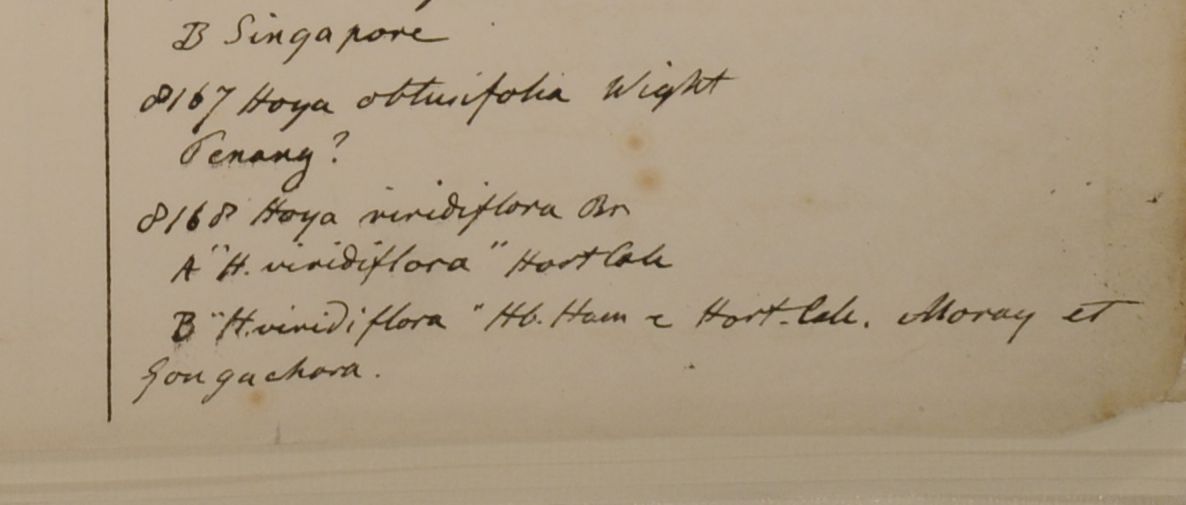 B Singapore
8167 Hoya obtusifolia Wight
Penang?
8168 Hoya viridiflora Br
A "H. viridiflora" Hort Calc
B "H. viridiflora" Hb. Ham e Hort. Calc. Moray et
Gongachora.